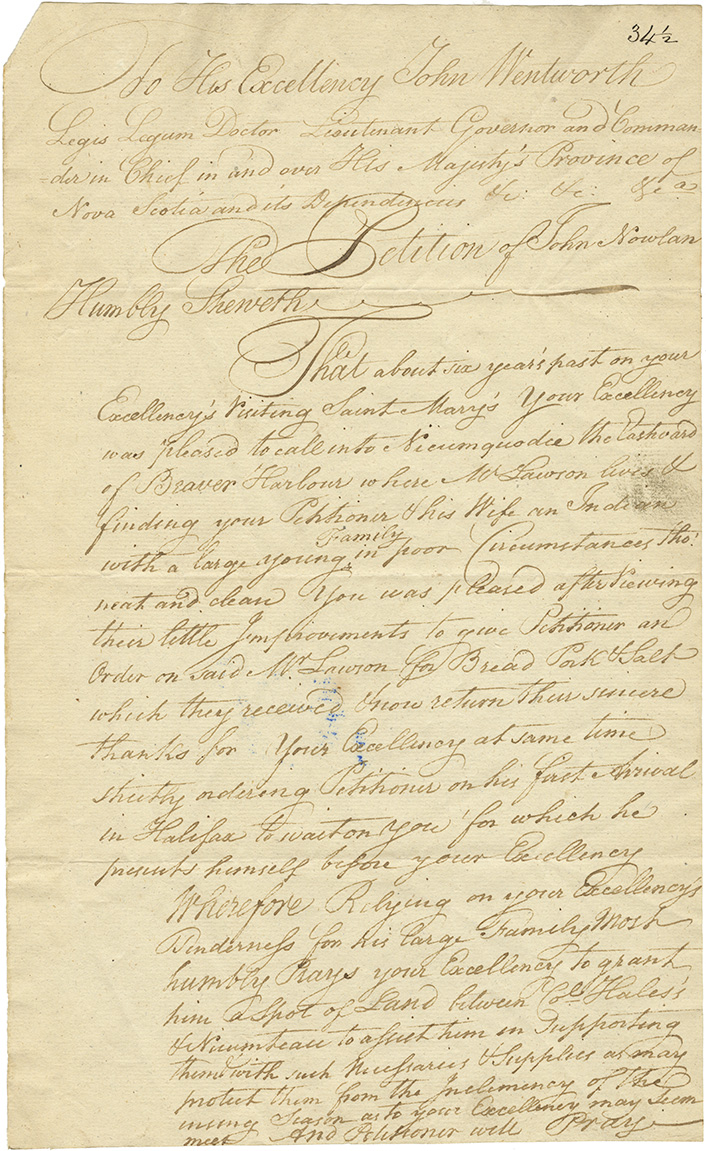 34½
To His Excellency John Wentworth
Legis Legum Doctor Lieutenant Governor and Comman-
-der in Chief in and over His Majesty's Province of
Nova Scotia and its Dependencies &c: &c: &ca
The Petition of John Nowlan
Humbly Sheweth
That about six year's past on your
Excellency's Visiting Saint Mary's Your Excellency
was pleased to call into Nicumquodie the Eastward
of Beaver Harbour where Mr Lawson lives &
finding your Petitioner & his Wife an Indean
with a large young Family in poor Circumstances tho'
neat and clean You was pleased after Viewing
their little Improvements to give Petitioner an
Order on said Mr Lawson for Bread Pork & Salt
which they received & now return their sincere
thanks for Your Excellency at same time
strictly ordering Petitioner on his first Arrival
in Halifax to wait on you for which he
presents himself before your Excellency
Wherefore Relying on your Excellency's
Tenderness for his large Family Most
humbly Prays your Excellency to grant
him a Spot of Land between Coll Hales's
& Nicumteau to assist him in Supporting
them with such Necessaries & Supplies as may
protect them from the Inclemency of the
insuing Season as to your Excellency may Seem
meet And Petitioner will Pray